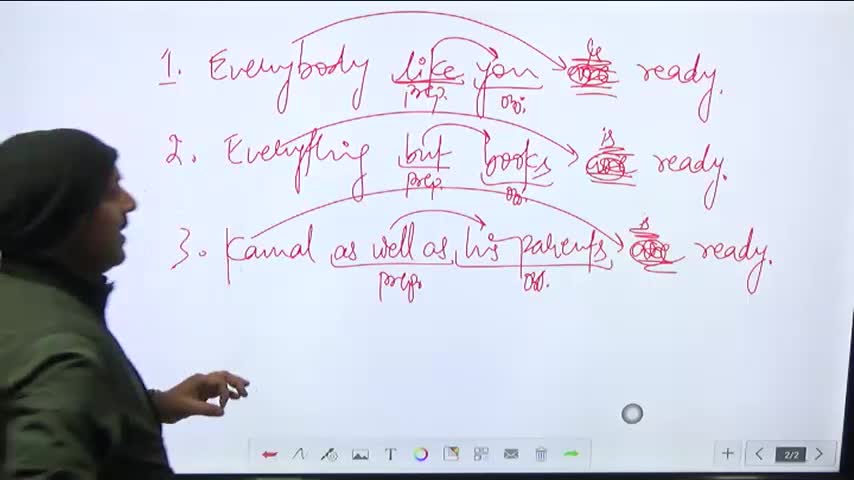 is
1. Everybody like you are ready.
prep. ob.
is
2. Everything but books are ready.
prep. ob.
is
3. Kamal as well as his parents are ready.
prep. ob.
T
2/2